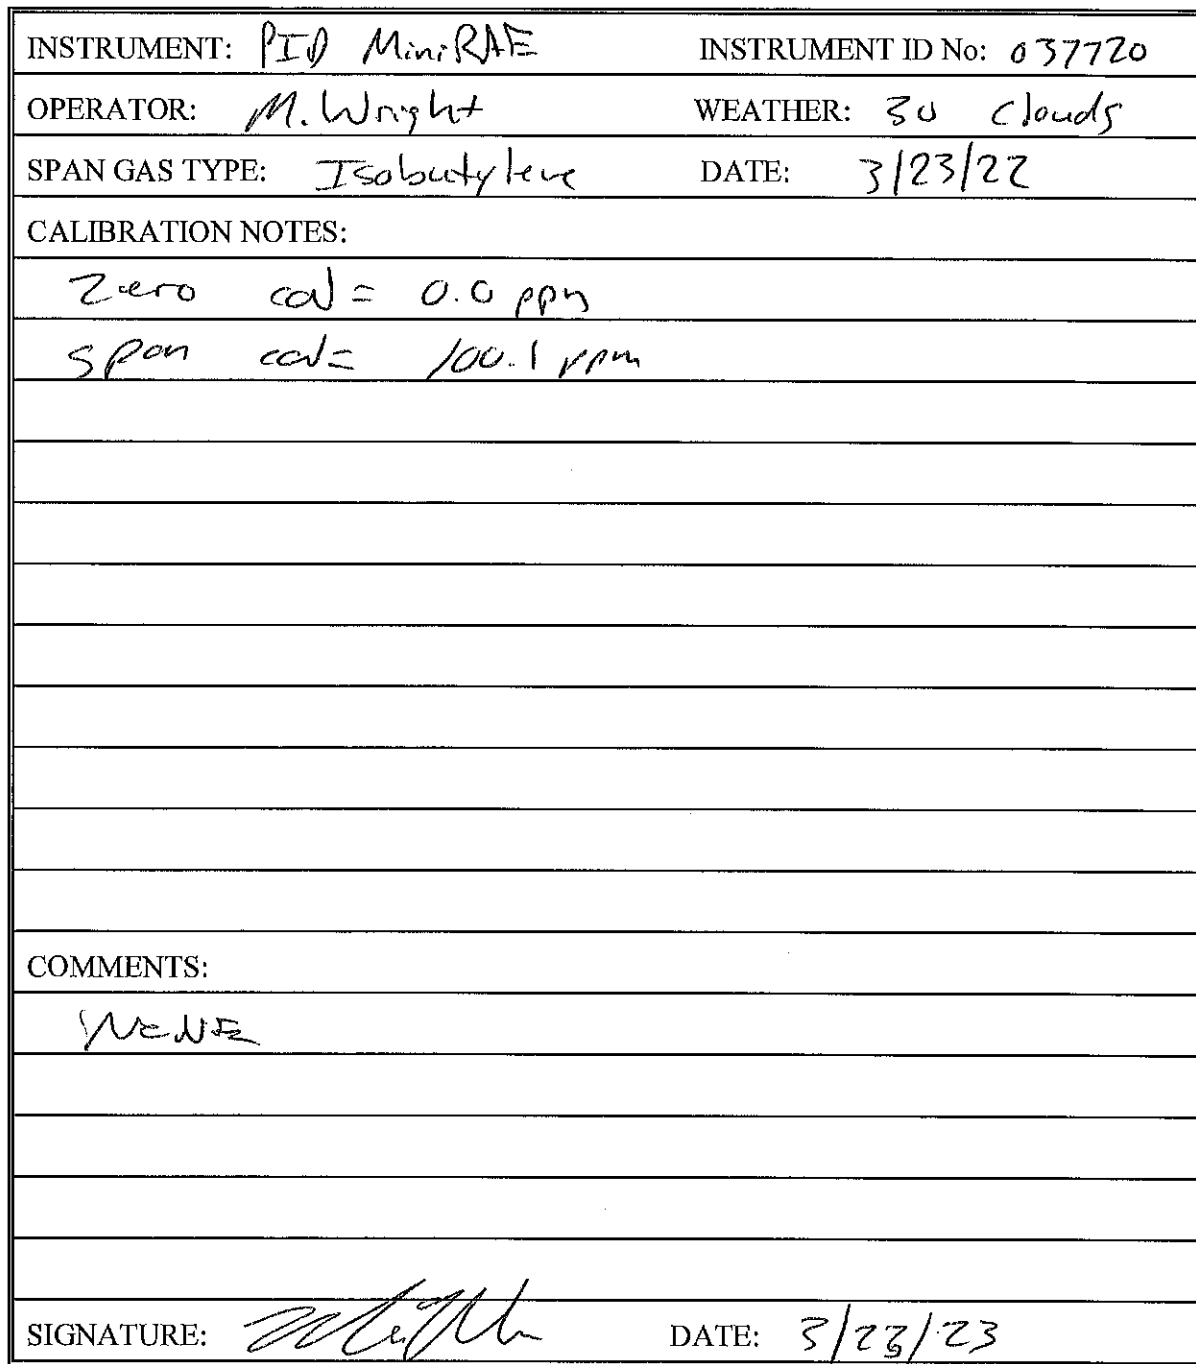 INSTRUMENT: PID MiniRAE INSTRUMENT ID No: 037720
OPERATOR: M. Wright WEATHER: 30 Clouds
SPAN GAS TYPE: Isobutylene DATE: 3/23/22
CALIBRATION NOTES:
Zero cal = 0.0 ppm
Span cal = 100.1 ppm
COMMENTS:
NONE
SIGNATURE: DATE: 3/23/23